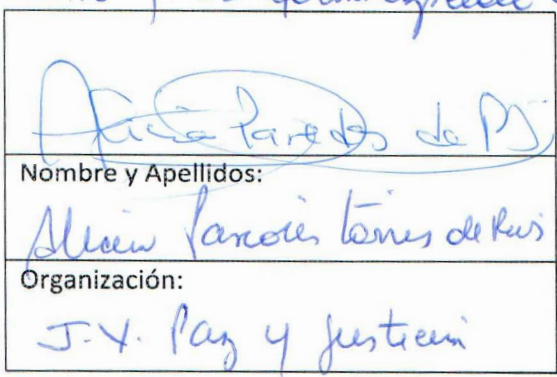 Alicia Paredes de
Nombre y Apellidos:
Alicia Paredes Torres de
Organización:
J.Y. Paz y Justicia